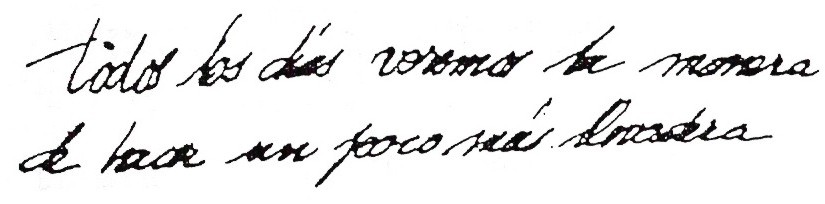 todos los días veremos la manera
de hacer un poco más llevadera